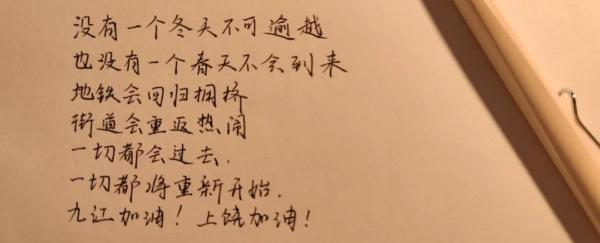 没有一个冬天不可逾越
也没有一个春天不会到来
地铁会回归拥挤
街道会重返热闹
一切都会过去.
一切都将重新开始.
九江加油！上饶加油！